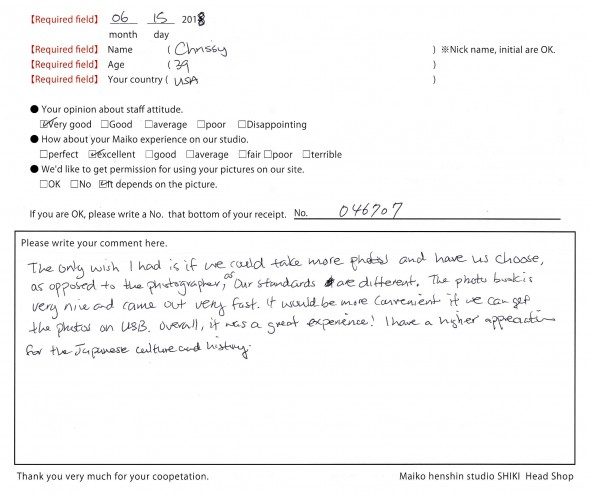 【Required field】 06 15 2018
month day
【Required field】 Name ( Chrissy ) ※Nick name, initial are OK.
【Required field】 Age ( 39 )
【Required field】 Your country ( USA )
● Your opinion about staff attitude.
☑Very good □Good □average □poor □Disappointing
● How about your Maiko experience on our studio.
□perfect ☑excellent □good □average □fair □poor □terrible
● We'd like to get permission for using your pictures on our site.
□OK □No ☑It depends on the picture.
If you are OK, please write a No. that bottom of your receipt. No. 046707
Please write your comment here.
The only wish I had is if we could take more photos and have us choose,
as opposed to the photographer, as Our standards are different. The photo book is
very nice and came out very fast. It would be more convenient if we can get
the photos on USB. Overall, it was a great experience! I have a higher appreciation
for the Japanese culture and history.
Thank you very much for your coopetation. Maiko henshin studio SHIKI Head Shop